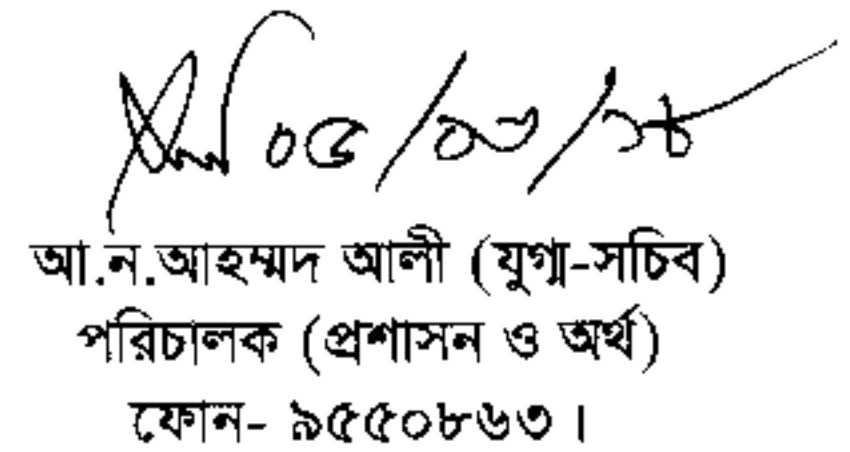 ০৫/০৩/১৮
আ.ন.আহম্মদ আলী (যুগ্ম-সচিব)
পরিচালক (প্রশাসন ও অর্থ)
ফোন- ৯৫৫০৮৬৩।